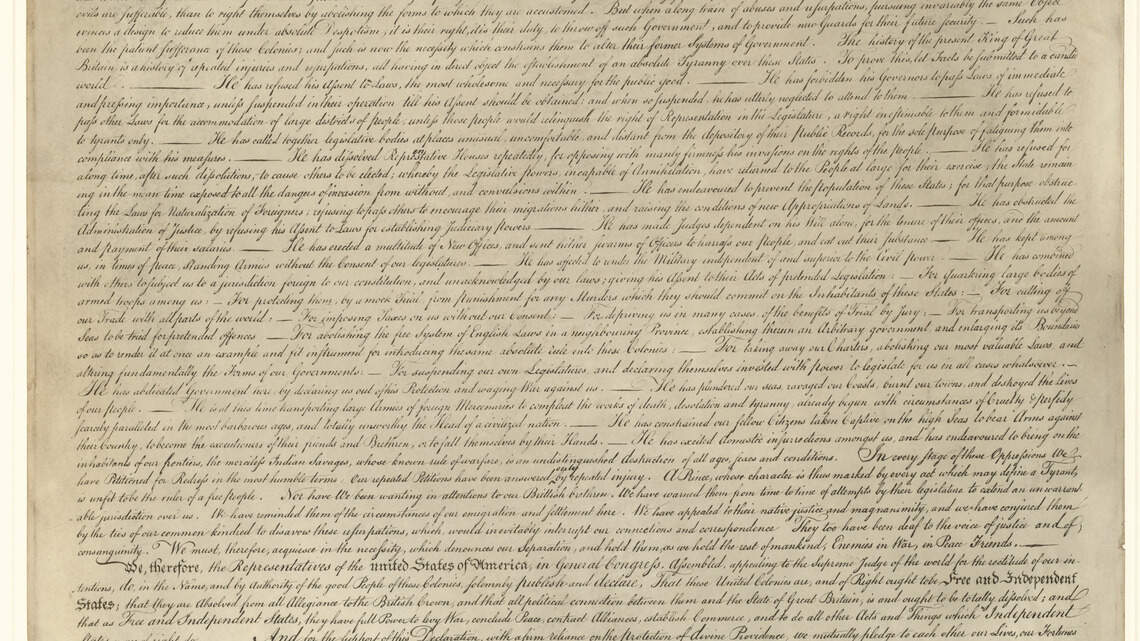 evils are sufferable, than to right themselves by abolishing the forms to which they are accustomed. But when a long train of abuses and usurpations, pursuing invariably the same Object
evinces a design to reduce them under absolute Despotism, it is their right, it is their duty, to throw off such Government, and to provide new Guards for their future security. — Such has
been the patient sufferance of these Colonies; and such is now the necessity which constrains them to alter their former Systems of Government. The history of the present King of Great
Britain is a history of repeated injuries and usurpations, all having in direct object the establishment of an absolute Tyranny over these States. To prove this, let Facts be submitted to a candid
world. — He has refused his Assent to Laws, the most wholesome and necessary for the public good. — He has forbidden his Governors to pass Laws of immediate
and pressing importance, unless suspended in their operation till his Assent should be obtained; and when so suspended, he has utterly neglected to attend to them. — He has refused to
pass other Laws for the accommodation of large districts of people, unless those people would relinquish the right of Representation in the Legislature, a right inestimable to them and formidable
to tyrants only. — He has called together legislative bodies at places unusual, uncomfortable, and distant from the depository of their public Records, for the sole purpose of fatiguing them into
compliance with his measures. — He has dissolved Representative Houses repeatedly, for opposing with manly firmness his invasions on the rights of the people. — He has refused for
a long time, after such dissolutions, to cause others to be elected; whereby the Legislative powers, incapable of Annihilation, have returned to the People at large for their exercise; the State remain
ing in the mean time exposed to all the dangers of invasion from without, and convulsions within. — He has endeavoured to prevent the population of these States; for that purpose obstruc
ting the Laws for Naturalization of Foreigners; refusing to pass others to encourage their migrations hither, and raising the conditions of new Appropriations of Lands. — He has obstructed the
Administration of Justice, by refusing his Assent to Laws for establishing Judiciary powers. — He has made Judges dependent on his Will alone, for the tenure of their offices, and the amount
and payment of their salaries. — He has erected a multitude of New Offices, and sent hither swarms of Officers to harrass our People, and eat out their substance. — He has kept among
us, in times of peace, Standing Armies without the Consent of our legislatures. — He has affected to render the Military independent of and superior to the Civil power. — He has combined
with others to subject us to a jurisdiction foreign to our constitution, and unacknowledged by our laws; giving his Assent to their Acts of pretended Legislation: — For Quartering large bodies of
armed troops among us: — For protecting them, by a mock Trial, from punishment for any Murders which they should commit on the Inhabitants of these States: — For cutting off
our Trade with all parts of the world: — For imposing Taxes on us without our Consent: — For depriving us in many cases, of the benefits of Trial by jury: — For transporting us beyond
Seas to be tried for pretended offences — For abolishing the free System of English Laws in a neighbouring Province, establishing therein an Arbitrary government, and enlarging its Boundaries
so as to render it at once an example and fit instrument for introducing the same absolute rule into these Colonies: — For taking away our Charters, abolishing our most valuable Laws, and
altering fundamentally the Forms of our Governments: — For suspending our own Legislatures, and declaring themselves invested with power to legislate for us in all cases whatsoever. —
He has abdicated Government here, by declaring us out of his Protection and waging War against us. — He has plundered our seas, ravaged our Coasts, burnt our towns, and destroyed the lives
of our people. — He is at this time transporting large Armies of foreign Mercenaries to compleat the works of death, desolation and tyranny, already begun with circumstances of Cruelty & perfidy
scarcely paralleled in the most barbarous ages, and totally unworthy the Head of a civilized nation. — He has constrained our fellow Citizens taken Captive on the high Seas to bear Arms against
their Country, to become the executioners of their friends and Brethren, or to fall themselves by their Hands. — He has excited domestic insurrections amongst us, and has endeavoured to bring on the
inhabitants of our frontiers, the merciless Indian Savages, whose known rule of warfare, is an undistinguished destruction of all ages, sexes and conditions. In every stage of these Oppressions We
have Petitioned for Redress in the most humble terms: Our repeated Petitions have been answered only by repeated injury. A Prince, whose character is thus marked by every act which may define a Tyrant,
is unfit to be the ruler of a free people. Nor have We been wanting in attentions to our Brittish brethren. We have warned them from time to time of attempts by their legislature to extend an unwarrant
able jurisdiction over us. We have reminded them of the circumstances of our emigration and settlement here. We have appealed to their native justice and magnanimity, and we have conjured them
by the ties of our common kindred to disavow these usurpations, which, would inevitably interrupt our connections and correspondence They too have been deaf to the voice of justice and of
consanguinity. We must, therefore, acquiesce in the necessity, which denounces our Separation, and hold them, as we hold the rest of mankind, Enemies in War, in Peace Friends. —
We, therefore, the Representatives of the united States of America, in General Congress, Assembled, appealing to the Supreme Judge of the world for the rectitude of our in
tentions, do, in the Name, and by authority of the good People of these Colonies, solemnly publish and declare, That these United Colonies are, and of Right ought to be Free and Independent
States; that they are Absolved from all Allegiance to the British Crown, and that all political connection between them and the State of Great Britain, is and ought to be totally dissolved; and
that as Free and Independent States, they have full Power to levy War, conclude Peace, contract Alliances, establish Commerce, and to do all other Acts and Things which Independent
And for the support of this Declaration, with a firm reliance on the Protection of divine Providence, we mutually pledge to each other our Lives, our Fortunes